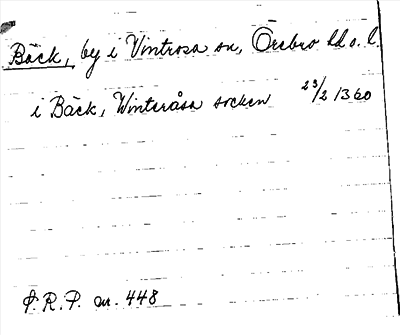 Bäck, by i Vintrosa sn, Örebro hd o. l.
i Bäck, Winteråsa socken 23/2 1360
S. R. P. nr. 448